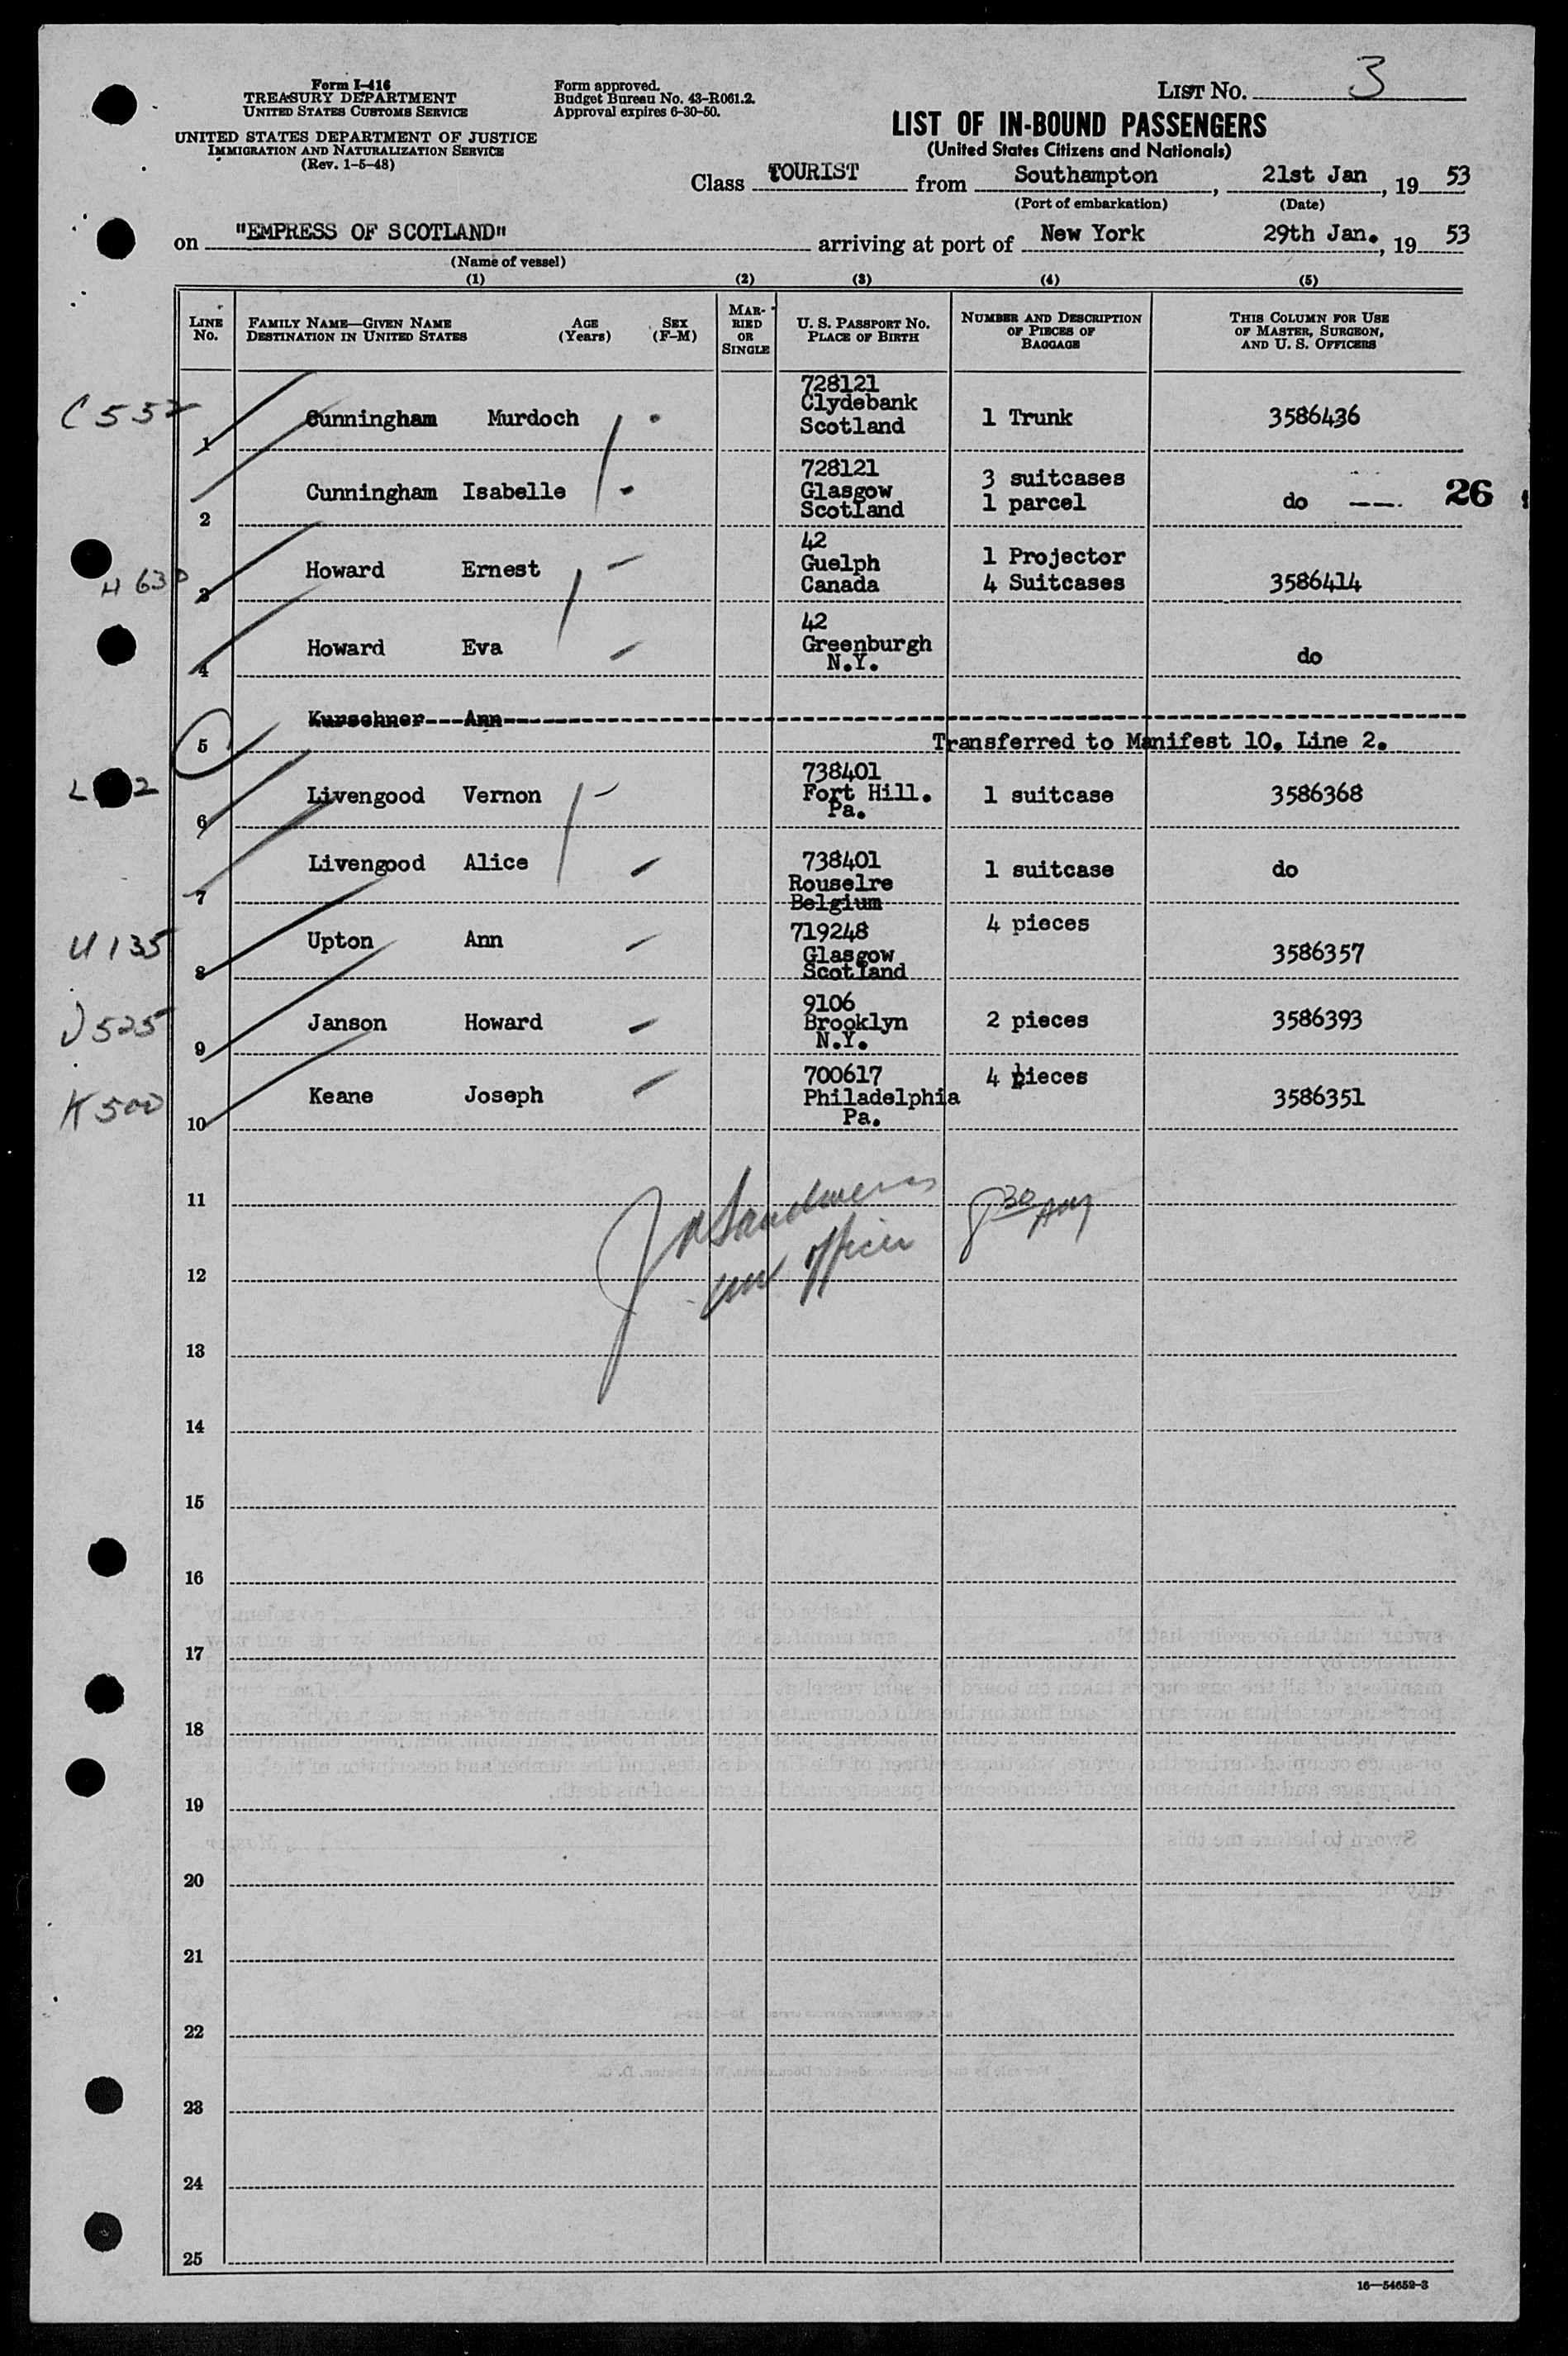 Form I-416
TREASURY DEPARTMENT
UNITED STATES CUSTOMS SERVICE
UNITED STATES DEPARTMENT OF JUSTICE
IMMIGRATION AND NATURALIZATION SERVICE
(Rev. 1-5-48)
Form approved.
Budget Bureau No. 43-R061.2.
Approval expires 6-30-50.
LIST NO. 3
LIST OF IN-BOUND PASSENGERS
(United States Citizens and Nationals)
Class TOURIST from Southampton, 21st Jan, 19 53
(Port of embarkation) (Date)
on "EMPRESS OF SCOTLAND" arriving at port of New York 29th Jan., 19 53
(Name of vessel)
(1) (2) (3) (4) (5)
LINE NO.
FAMILY NAME—GIVEN NAME
DESTINATION IN UNITED STATES
AGE (Years)
SEX (F-M)
MARRIED OR SINGLE
U. S. PASSPORT NO.
PLACE OF BIRTH
NUMBER AND DESCRIPTION
OF PIECES OF
BAGGAGE
THIS COLUMN FOR USE
OF MASTER, SURGEON,
AND U. S. OFFICERS
C 552
1 Cunningham Murdoch 728121 Clydebank Scotland 1 Trunk 3586436
2 Cunningham Isabelle 728121 Glasgow Scotland 3 suitcases 1 parcel do
26
H 630
3 Howard Ernest 42 Guelph Canada 1 Projector 4 Suitcases 3586414
4 Howard Eva 42 Greenburgh N.Y. do
5 Kurschner Ann
Transferred to Manifest 10. Line 2.
L 2
6 Livengood Vernon 738401 Fort Hill. Pa. 1 suitcase 3586368
7 Livengood Alice 738401 Rouselre Belgium 1 suitcase do
U 135
8 Upton Ann 719248 Glasgow Scotland 4 pieces 3586357
J 525
9 Janson Howard 9106 Brooklyn N.Y. 2 pieces 3586393
K 500
10 Keane Joseph 700617 Philadelphia Pa. 4 pieces 3586351
11
officer
8 30 AM
12
13
14
15
16
17
18
19
20
21
22
23
24
25
16—54652-3